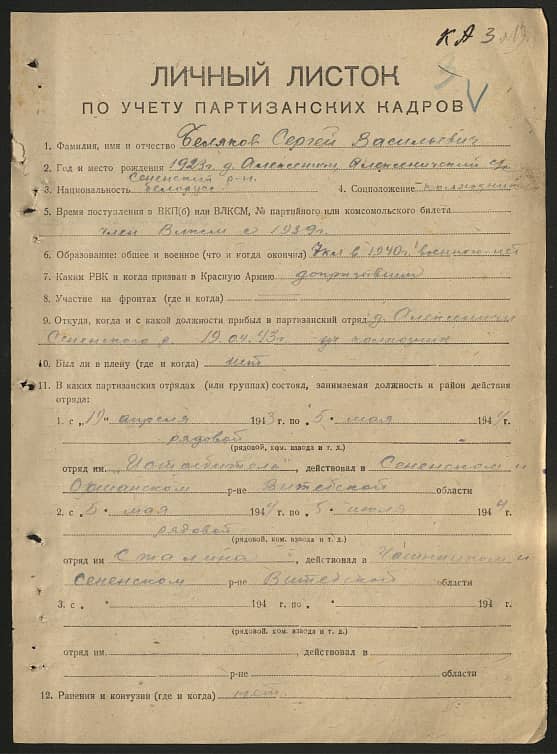 КАЗ
ЛИЧНЫЙ ЛИСТОК
ПО УЧЕТУ ПАРТИЗАНСКИХ КАДРОВ
1. Фамилия, имя и отчество Беляков Сергей Васильевич
2. Год и место рождения 1923г. д. Алексеничи Алексеничский с/с
Сененский р-н.
3. Национальность белорус 4. Соцположение колхозник
5. Время поступления в ВКП(б) или ВЛКСМ, № партийного или комсомольского билета
член ВЛКСМ с 1939г.
6. Образование: общее и военное (что и когда окончил) 7кл в 1940г. военного нет
7. Каким РВК и когда призван в Красную Армию допризывник
8. Участие на фронтах (где и когда)
9. Откуда, когда и с какой должности прибыл в партизанский отряд д. Алексеничи
Сененского р. 19.04.43г. колхозник
10. Был ли в плену (где и когда) нет
11. В каких партизанских отрядах (или группах) состоял, занимаемая должность и район действия
отряда:
1. с „19" апреля 1943 г. по „5" мая 1944 г.
рядовой
(рядовой, ком. взвода и т. д.)
отряд им. , действовал в Сененском и
Оршанском р-не Витебской области
2. с „5" мая 1944 г. по „5" июля 1944 г.
рядовой
(рядовой, ком. взвода и т. д.)
отряд им. Сталина , действовал в Чашникском и
Сененском р-не Витебской области
3. с „ " 194 г. по „ " 194 г.
(рядовой, ком. взвода и т. д.)
отряд им. , действовал в
р-не области
12. Ранения и контузии (где и когда) нет.